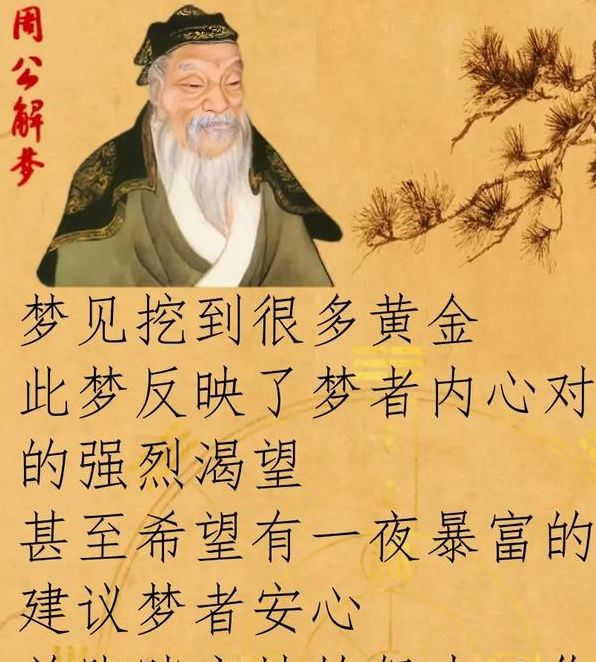 周公解梦
梦见挖到很多黄金
此梦反映了梦者内心对
的强烈渴望
甚至希望有一夜暴富的
建议梦者安心